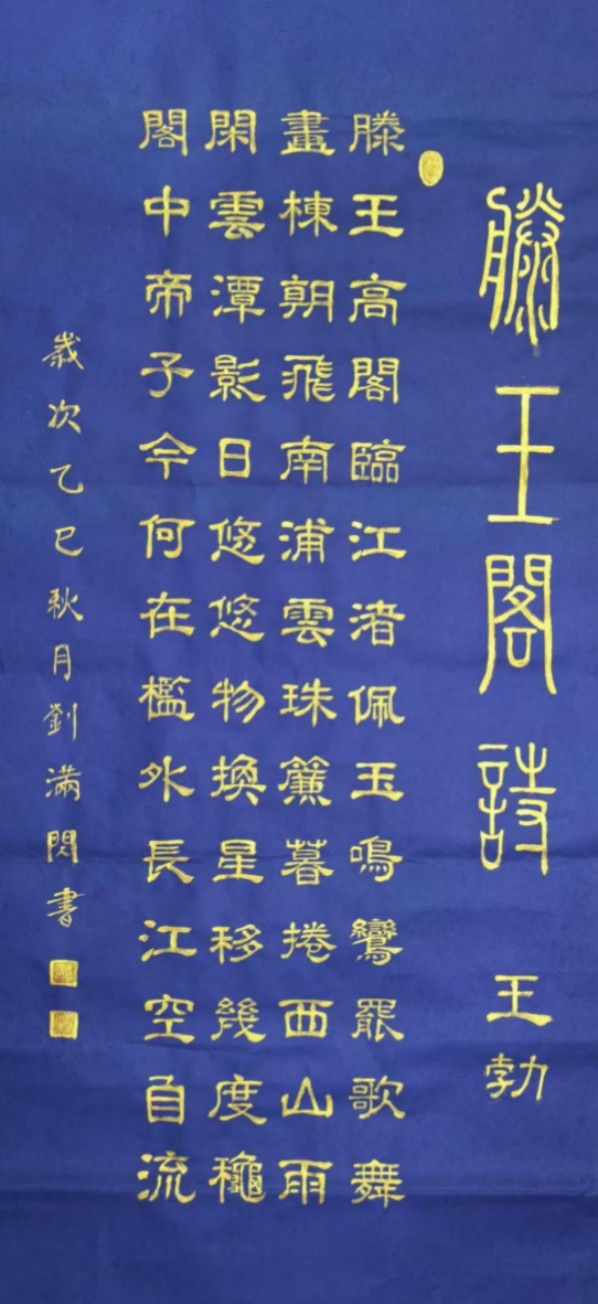 滕王閣詩 王勃
滕王高閣臨江渚佩玉鳴鸞罷歌舞
畫棟朝飛南浦雲珠簾暮捲西山雨
閑雲潭影日悠悠物換星移幾度龝
閣中帝子今何在檻外長江空自流
歲次乙巳秋月劉滿閃書